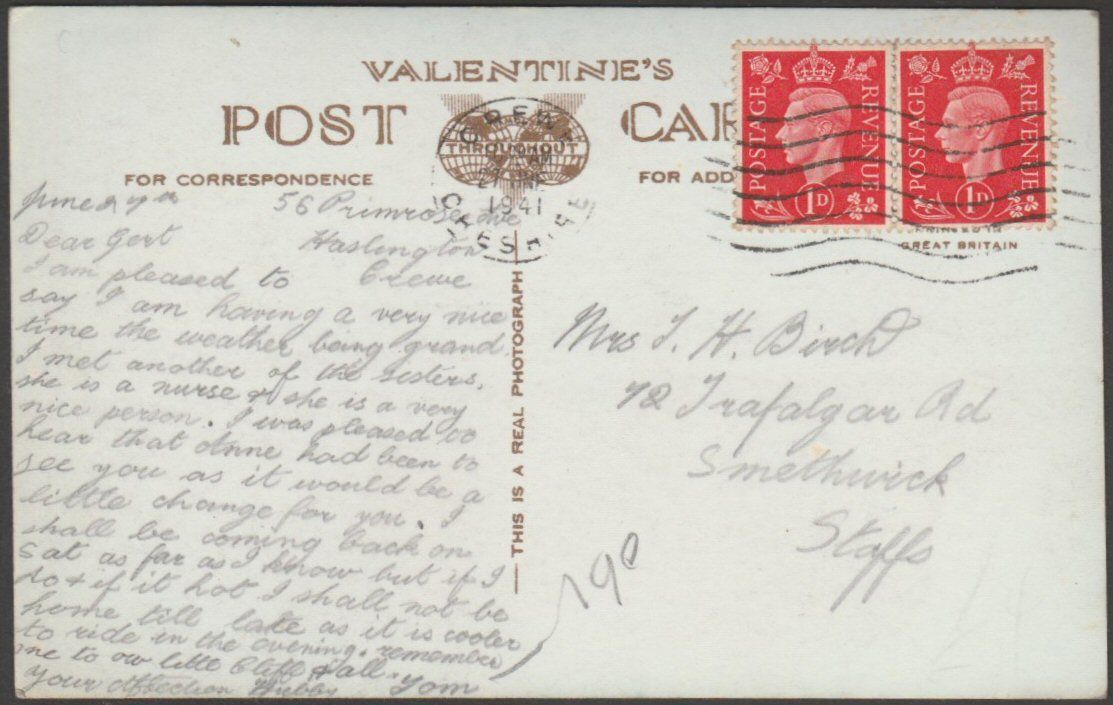 VALENTINE'S
POST CAR
THROUGHOUT
FOR CORRESPONDENCE
FOR ADD
CREWE
CHESHIRE
AM
1941
POSTAGE REVENUE
1D
POSTAGE REVENUE
1D
PRINTED IN
GREAT BRITAIN
THIS IS A REAL PHOTOGRAPH
June 27th 56 Primrose Ave
Dear Gert Haslington
I am pleased to Crewe
say I am having a very nice
time the weather being grand.
I met another of the sisters.
she is a nurse & she is a very
nice person. I was pleased to
hear that Anne had been to
see you as it would be a
little change for you. I
shall be coming back on
Sat as far as I know but if I
do & if it hot I shall not be
home till late as it is cooler
to ride in the evening. remember
me to ow little Cliff & all.
your Affection Hubby Tom
Mrs T. H. Birch
72 Trafalgar Rd
Smethwick
Staffs
190